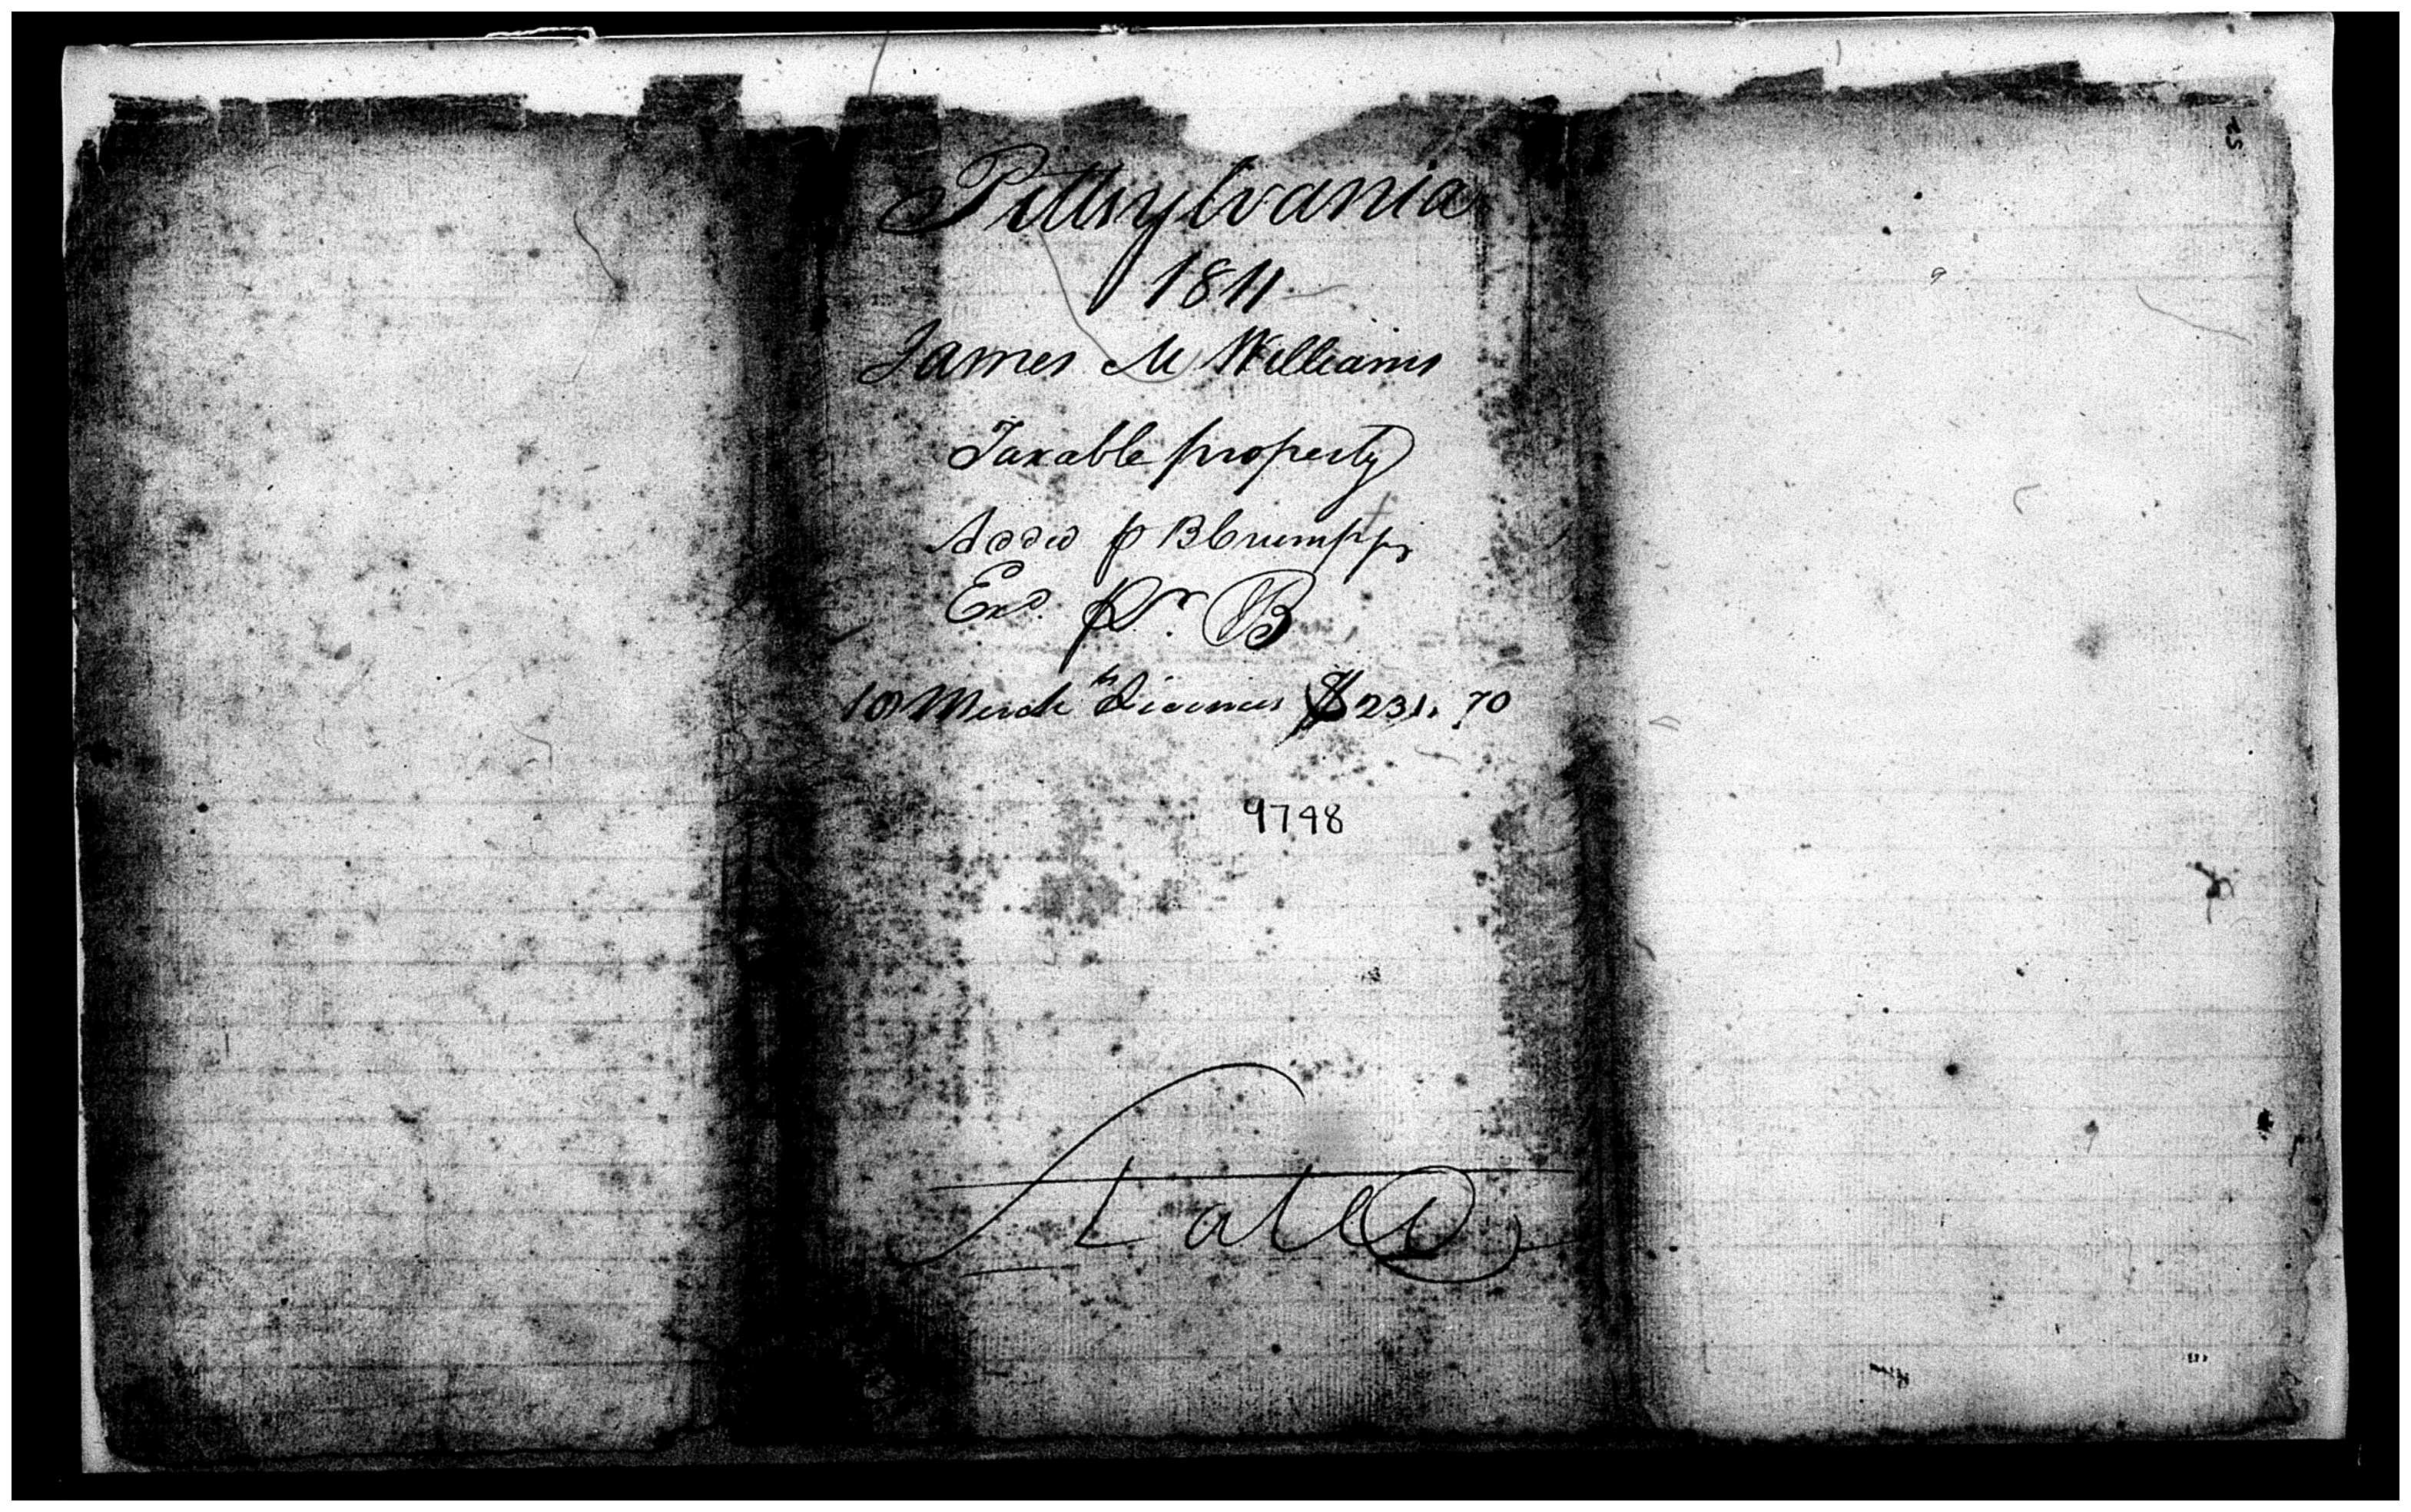 Pittsylvania
1811
James M Williams
Taxable property
Added p B Crump
Exd. pr. B
10 Mercht Licences $231.70
9748